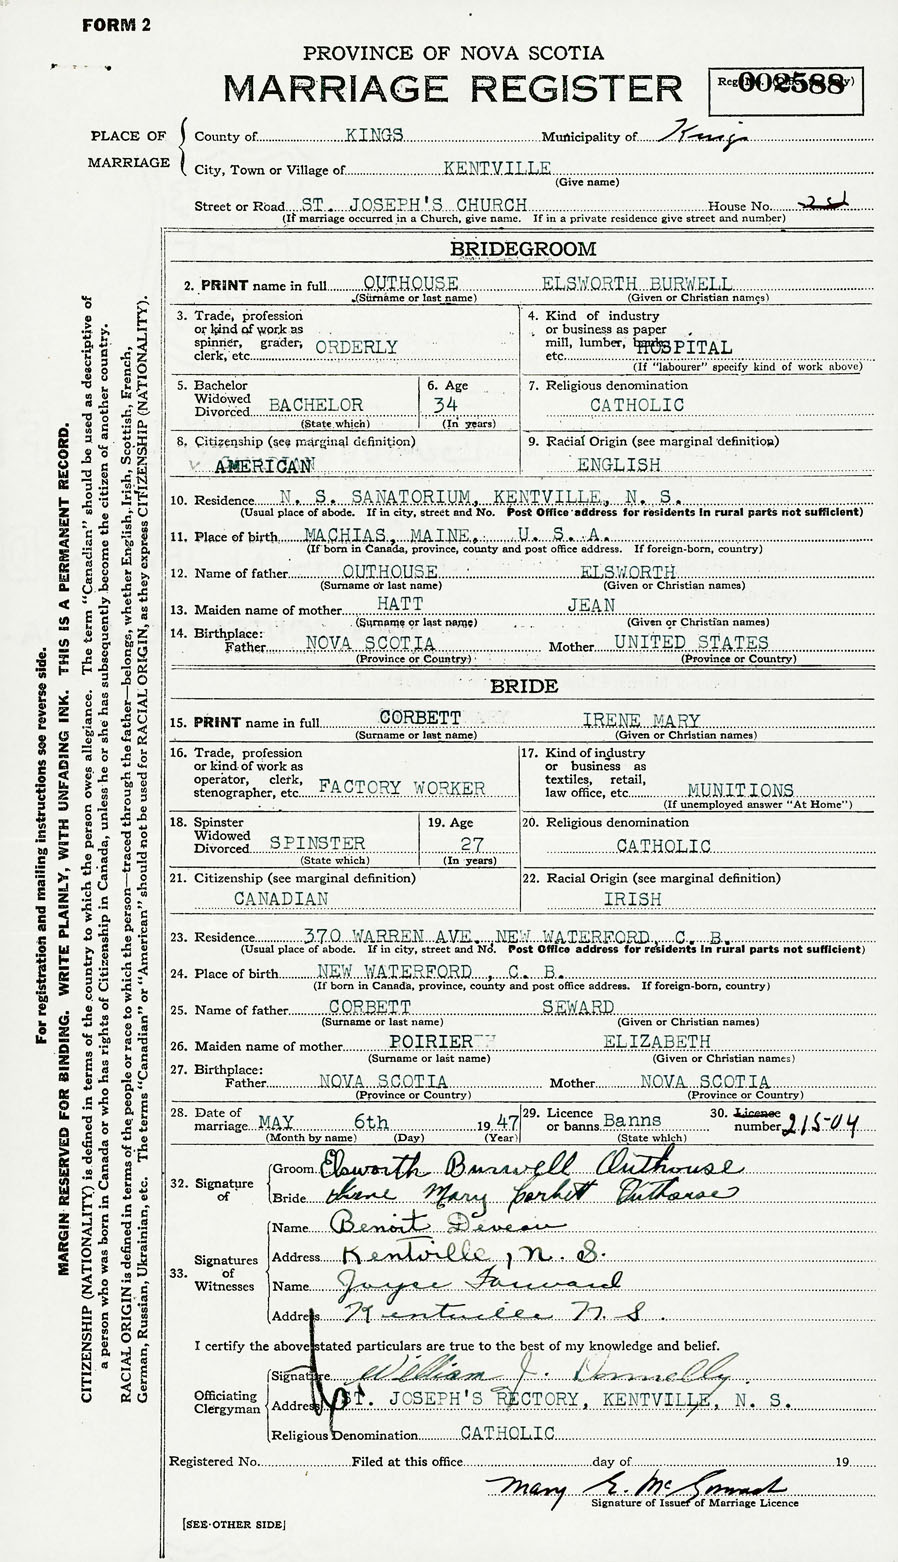 FORM 2
PROVINCE OF NOVA SCOTIA
MARRIAGE REGISTER
002588
PLACE OF MARRIAGE
County of KINGS Municipality of Kings
City, Town or Village of KENTVILLE
(Give name)
Street or Road ST. JOSEPH'S CHURCH House No.
(If marriage occurred in a Church, give name. If in a private residence give street and number)
BRIDEGROOM
2. PRINT name in full OUTHOUSE ELSWORTH BURWELL
(Surname or last name) (Given or Christian names)
3. Trade, profession 4. Kind of industry
or kind of work as or business as paper
spinner, grader, mill, lumber,
clerk, etc. ORDERLY etc. HOSPITAL
(If "labourer" specify kind of work above)
5. Bachelor 6. Age 7. Religious denomination
Widowed
Divorced BACHELOR 34 CATHOLIC
(State which) (In years)
8. Citizenship (see marginal definition) 9. Racial Origin (see marginal definition)
AMERICAN ENGLISH
10. Residence N. S. SANATORIUM, KENTVILLE, N. S.
(Usual place of abode. If in city, street and No. Post Office address for residents in rural parts not sufficient)
11. Place of birth MACHIAS, MAINE, U. S. A.
(If born in Canada, province, county and post office address. If foreign-born, country)
12. Name of father OUTHOUSE ELSWORTH
(Surname or last name) (Given or Christian names)
13. Maiden name of mother HATT JEAN
(Surname or last name) (Given or Christian names)
14. Birthplace:
Father NOVA SCOTIA Mother UNITED STATES
(Province or Country) (Province or Country)
BRIDE
15. PRINT name in full CORBETT IRENE MARY
(Surname or last name) (Given or Christian names)
16. Trade, profession 17. Kind of industry
or kind of work as or business as
operator, clerk, textiles, retail,
stenographer, etc. FACTORY WORKER law office, etc. MUNITIONS
(If unemployed answer "At Home")
18. Spinster 19. Age 20. Religious denomination
Widowed
Divorced SPINSTER 27 CATHOLIC
(State which) (In years)
21. Citizenship (see marginal definition) 22. Racial Origin (see marginal definition)
CANADIAN IRISH
23. Residence 370 WARREN AVE. NEW WATERFORD, C. B.
(Usual place of abode. If in city, street and No. Post Office address for residents in rural parts not sufficient)
24. Place of birth NEW WATERFORD , C. B.
(If born in Canada, province, county and post office address. If foreign-born, country)
25. Name of father CORBETT SEWARD
(Surname or last name) (Given or Christian names)
26. Maiden name of mother POIRIER ELIZABETH
(Surname or last name) (Given or Christian names)
27. Birthplace:
Father NOVA SCOTIA Mother NOVA SCOTIA
(Province or Country) (Province or Country)
28. Date of 29. Licence 30. Licence
marriage MAY 6th 1947 or banns Banns number 215-04
(Month by name) (Day) (Year) (State which)
32. Signature of
Groom Elsworth Burwell Outhouse
Bride Irene Mary Corbett Outhouse
33. Signatures of Witnesses
Name Benoit Deveau
Address Kentville, N. S.
Name Joyce Forward
Address Kentville N. S.
I certify the above stated particulars are true to the best of my knowledge and belief.
Officiating Clergyman
Signature William J. Donnelly
Address ST. JOSEPH'S RECTORY, KENTVILLE, N. S.
Religious Denomination CATHOLIC
Registered No. Filed at this office day of 19
Mary E.
Signature of Issuer of Marriage Licence
[SEE OTHER SIDE]
For registration and mailing instructions see reverse side.
MARGIN RESERVED FOR BINDING. WRITE PLAINLY, WITH UNFADING INK. THIS IS A PERMANENT RECORD.
CITIZENSHIP (NATIONALITY) is defined in terms of the country to which the person owes allegiance. The term "Canadian" should be used as descriptive of
a person who was born in Canada or who has rights of Citizenship in Canada, unless he or she has subsequently become the citizen of another country.
RACIAL ORIGIN is defined in terms of the people or race to which the person—traced through the father—belongs, whether English, Irish, Scottish, French,
German, Russian, Ukrainian, etc. The terms "Canadian" or "American" should not be used for RACIAL ORIGIN, as they express CITIZENSHIP (NATIONALITY).